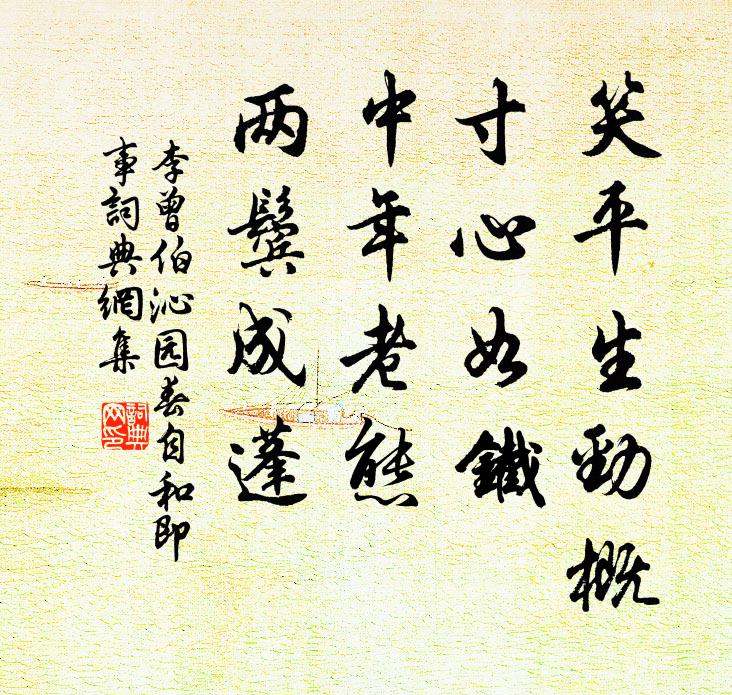 笑平生劲概
寸心如鐵
中年老態
两鬓成蓬
李曾伯沁园春自和即
事詞典網集
詞典
网印